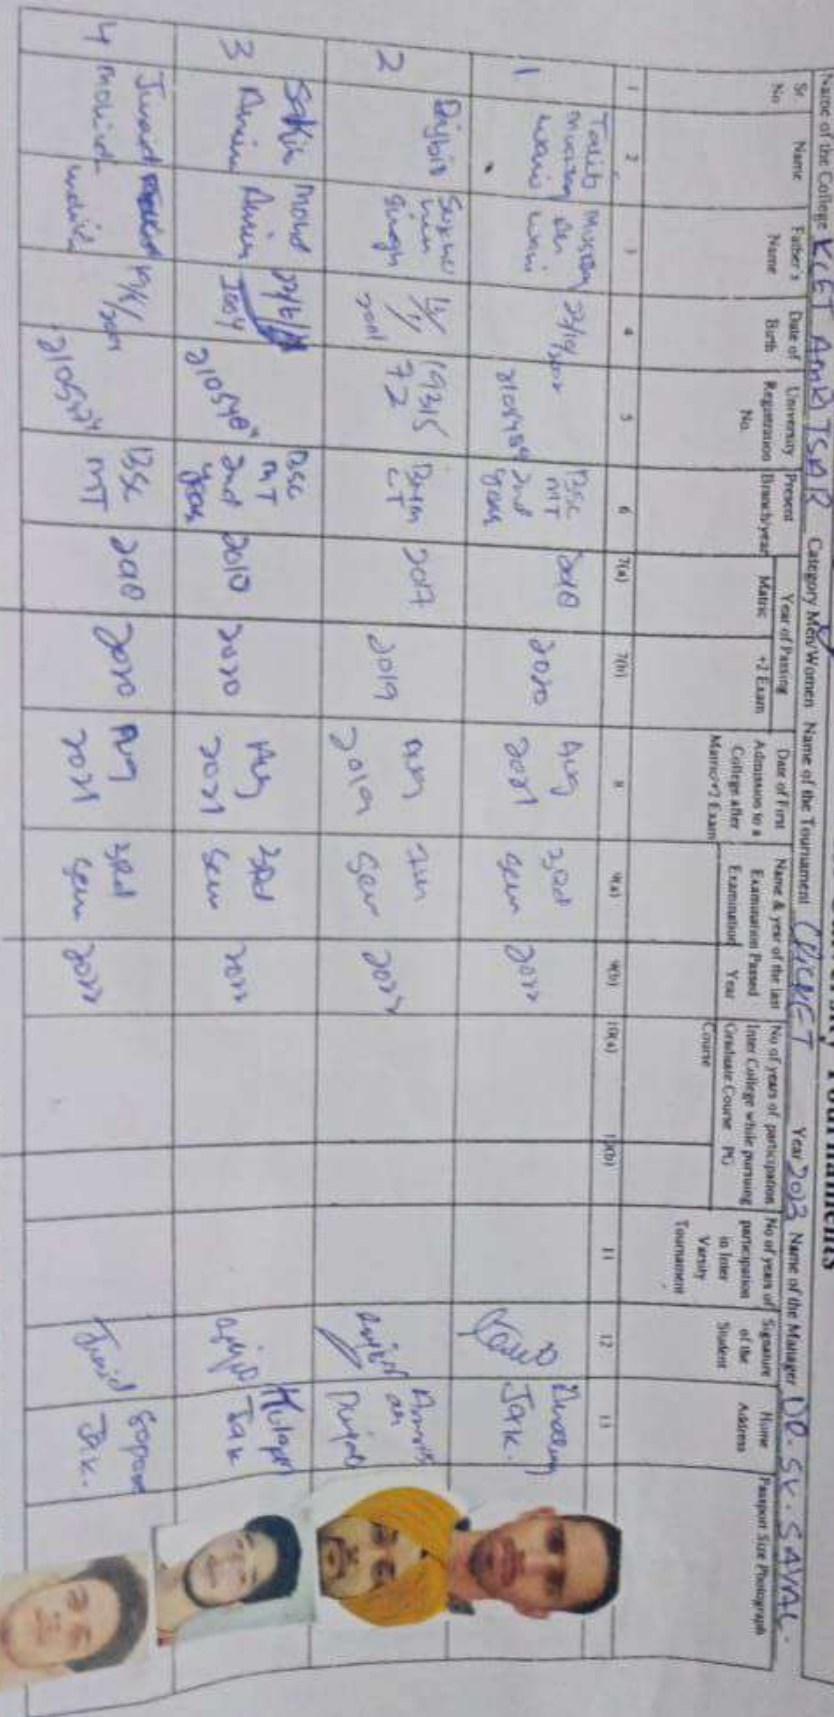 Tournaments
Name of the College KCET AMRITSAR Category Men/Women Name of the Tournament CRICKET Year 2023 Name of the Manager DR. SK. SAYAL.
Sr. No
Name
Father's Name
Date of Birth
University Registration No.
Present Branch/year
Year of Passing
Matric
+2 Exam
Date of First Admission to a College after Matric/+2 Exam
Name & year of the last Examination Passed
Examination
Year
No of years of participation Inter College while pursuing
Graduate Course
PG Course
No of years of participation in Inter Varsity Tournament
Signature of the Student
Home Address
Passport Size Photograph
1 2 3 4 5 6 7(a) 7(b) 8 9(a) 9(b) 10(a) 10(b) 11 12 13
1 Talib wani wani BSc MT 2nd year 2018 2020 Aug 2021 3rd Sem 2022 J&K.
2 Singh 2001 1931572 2017 2019 Aug 2019 Sem
3 Sakib Amin Mohd Amin BSc MT 2nd year 2018 2020 Aug 2021 3rd Sem 2022 J&K
4 Junaid BSc MT 2018 2020 Aug 2021 3rd Sem 2022 Junaid Sopore J&K.